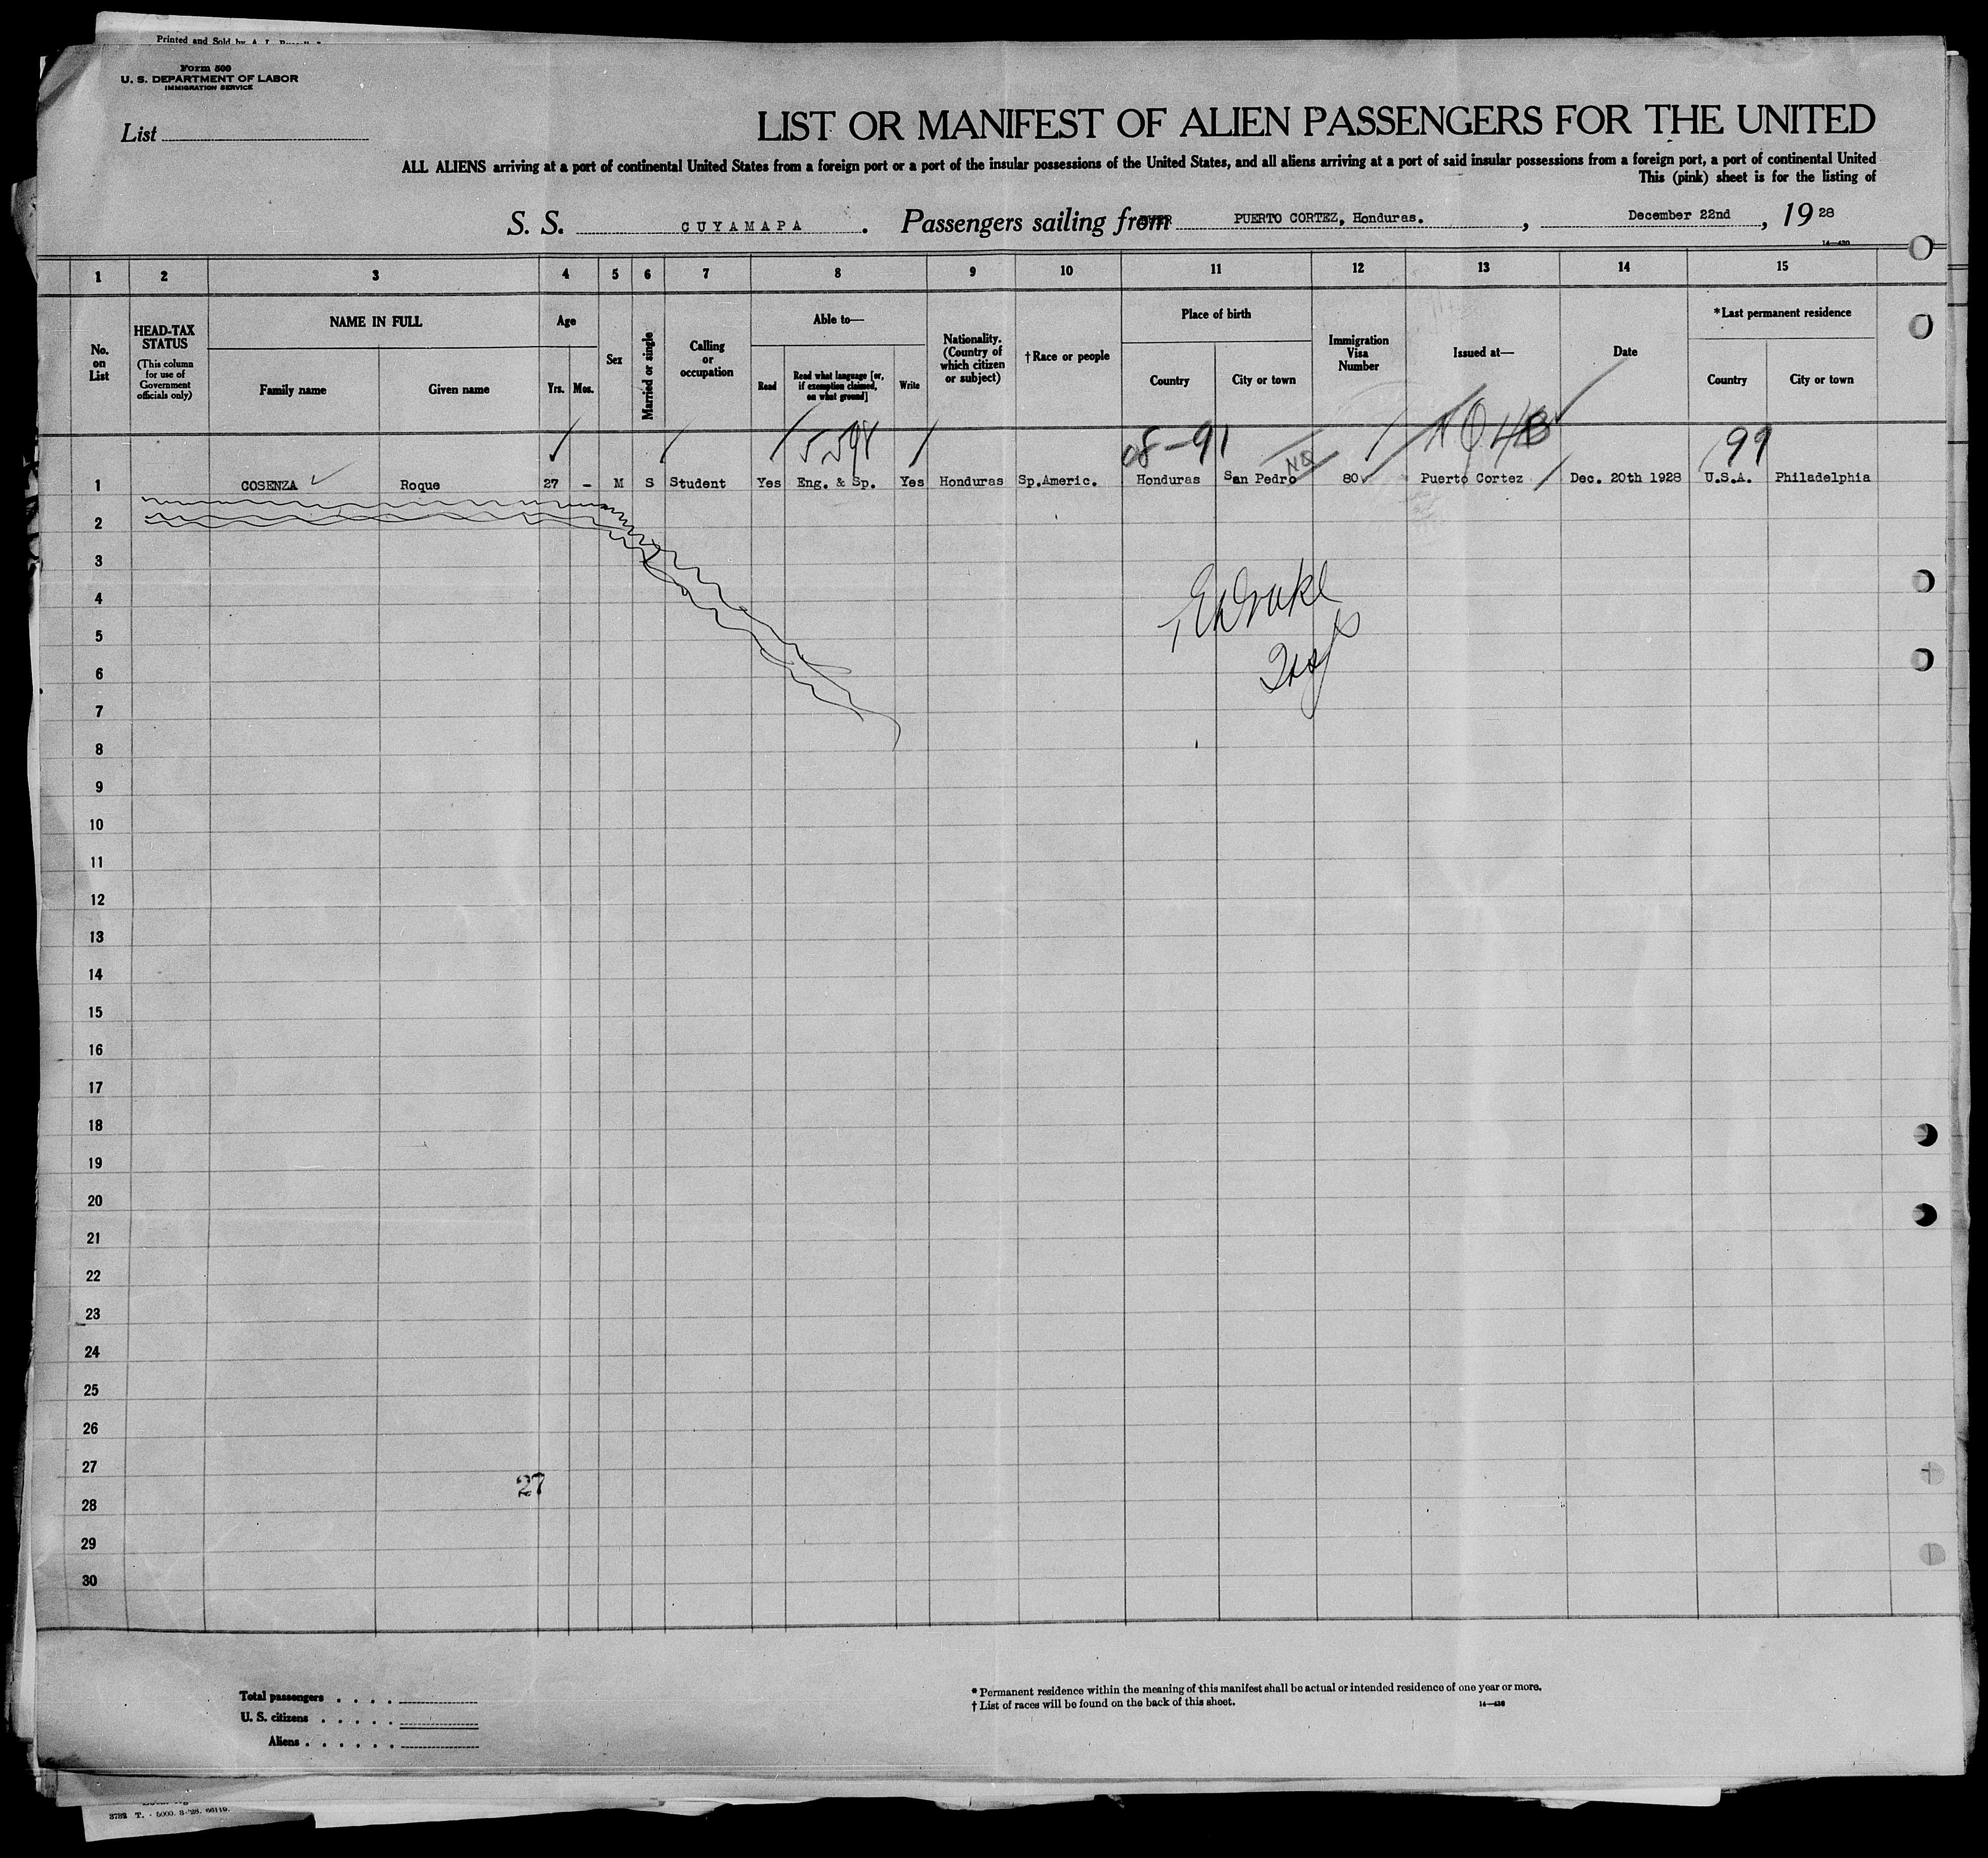 Printed and Sold by
Form 500
U. S. DEPARTMENT OF LABOR
IMMIGRATION SERVICE
List
LIST OR MANIFEST OF ALIEN PASSENGERS FOR THE UNITED
ALL ALIENS arriving at a port of continental United States from a foreign port or a port of the insular possessions of the United States, and all aliens arriving at a port of said insular possessions from a foreign port, a port of continental United
This (pink) sheet is for the listing of
S. S. CUYAMAPA. Passengers sailing from PUERTO CORTEZ, Honduras., December 22nd, 19 28
14—430
1 2 3 4 5 6 7 8 9 10 11 12 13 14 15
No. on List
HEAD-TAX STATUS
(This column for use of Government officials only)
NAME IN FULL
Family name Given name
Age
Yrs. Mos.
Sex
Married or single
Calling or occupation
Able to—
Read
Read what language [or, if exemption claimed, on what ground]
Write
Nationality. (Country of which citizen or subject)
†Race or people
Place of birth
Country City or town
Immigration Visa Number
Issued at—
Date
*Last permanent residence
Country City or town
08-91 99
1 COSENZA Roque 27 - M S Student Yes Eng. & Sp. Yes Honduras Sp.Americ. Honduras San Pedro NQ 80 Puerto Cortez Dec. 20th 1928 U.S.A. Philadelphia
2
3
4
5
6
7
8
9
10
11
12
13
14
15
16
17
18
19
20
21
22
23
24
25
26
27
27
28
29
30
Total passengers
U. S. citizens
Aliens
* Permanent residence within the meaning of this manifest shall be actual or intended residence of one year or more.
† List of races will be found on the back of this sheet.
14—430
3732 T. - 5000. 3-'28. 66119.